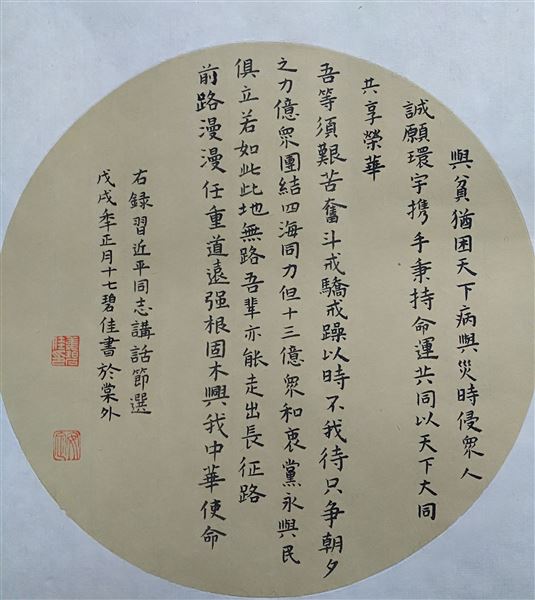 與貧猶困天下病與災時侵衆人
誠願環宇攜手秉持命運共同以天下大同
共享榮華
吾等須艱苦奮斗戒驕戒躁以時不我待只争朝夕
之力億衆團結四海同力但十三億衆和衷黨永與民
俱立若如此此地無路吾輩亦能走出長征路
前路漫漫任重道遠强根固木興我中華使命
右録習近平同志講話節選
戊戌年正月十七碧佳書於棠外